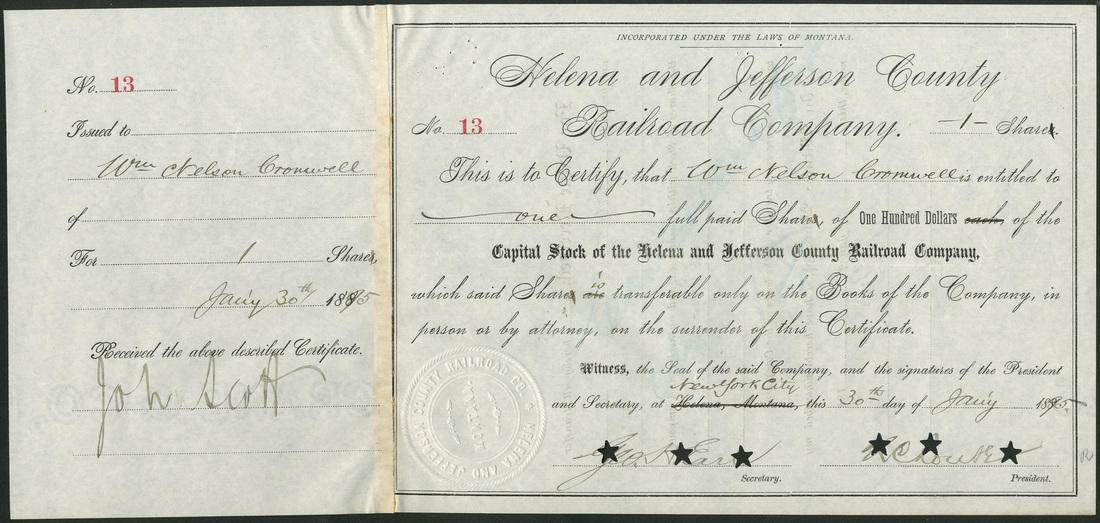 No. 13
Issued to
Wm Nelson Cromwell
of
For 1 Shares,
Jan'y 30th 1895
Received the above described Certificate.
Joh Scott
INCORPORATED UNDER THE LAWS OF MONTANA.
Helena and Jefferson County
No. 13 Railroad Company. -1- Share.
This is to Certify, that Wm Nelson Cromwell is entitled to
one full paid Share, of One Hundred Dollars each, of the
Capital Stock of the Helena and Jefferson County Railroad Company,
which said Share is are transferable only on the Books of the Company, in
person or by attorney, on the surrender of this Certificate.
Witness, the Seal of the said Company, and the signatures of the President
New York City
and Secretary, at Helena, Montana, this 30th day of Jan'y 1895
Secretary.
President.
HELENA AND JEFFERSON COUNTY RAILROAD CO.